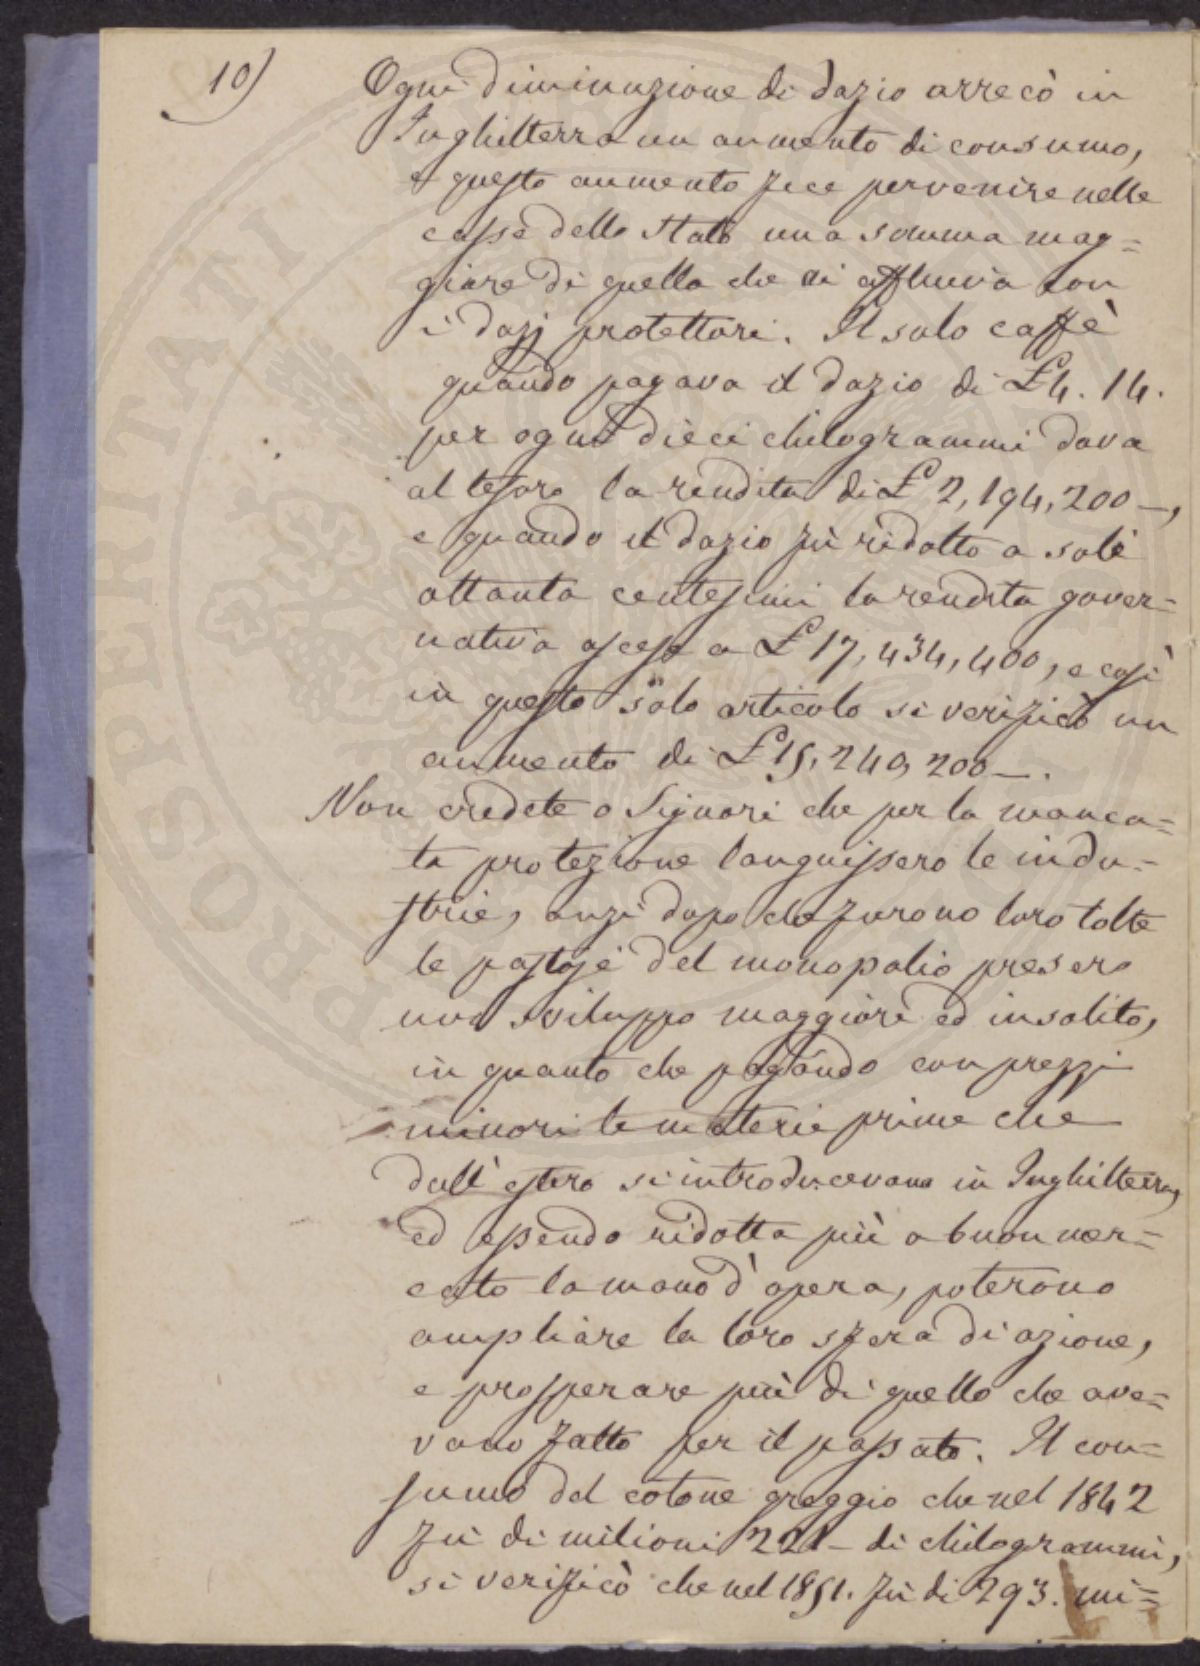 10)
Ogni diminuzione di dazio arrecò in
Inghilterra un aumento di consumo,
e questo aumento fece pervenire nelle
casse dello Stato una somma mag=
giore di quella che vi affluiva con
i dazj protettori. Il solo caffè
quando pagava il dazio di £4. 14.
per ogni dieci chilogrammi dava
al tesoro la rendita di £ 2,194,200 —,
e quando il dazio fù ridotto a soli
ottanta centesimi la rendita gover=
nativa ascese a £ 17,434,400, e così
in questo solo articolo si verificò un
aumento di £15,240,200 —.
Non credete o Signori che per la manca=
ta protezione languissero le indu=
strie, anzi dopo che furono loro tolte
le pastoje del monopolio presero
uno sviluppo maggiore ed insolito,
in quanto che pagando con prezzi
minori le materie prime che
dall'estero si introducevano in Inghilterra,
ed essendo ridotta più a buon mer=
cato la mano d'opera, poterono
ampliare la loro sfera di azione,
e prosperare più di quello che ave=
vano fatto per il passato. Il con=
sumo del cotone greggio che nel 1842
fù di milioni 221 — di chilogrammi,
si verificò che nel 1851. fù di 293. mi=
PROSPERITATI